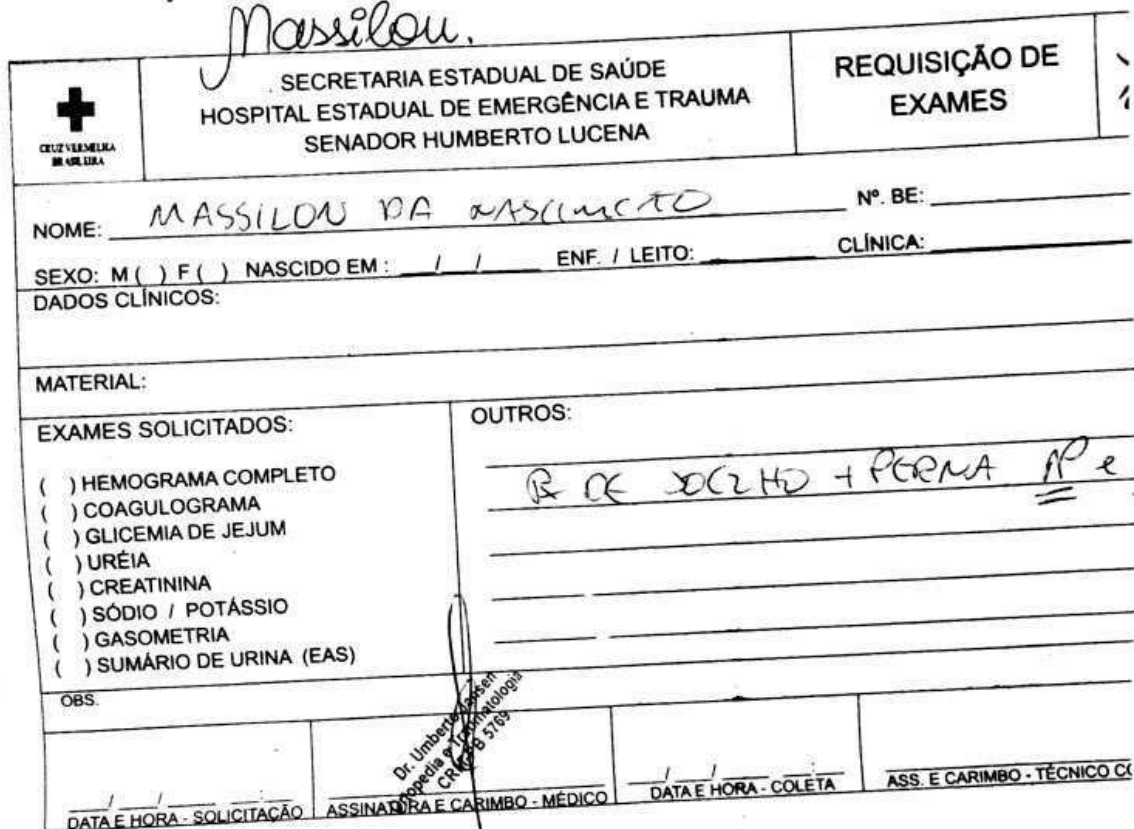 Massilou.
CRUZ VERMELHA
BRASILEIRA
SECRETARIA ESTADUAL DE SAÚDE
HOSPITAL ESTADUAL DE EMERGÊNCIA E TRAUMA
SENADOR HUMBERTO LUCENA
REQUISIÇÃO DE
EXAMES
NOME: MASSILON DA NASCIMETO Nº. BE:
SEXO: M ( ) F ( ) NASCIDO EM : / / ENF. / LEITO: CLÍNICA:
DADOS CLÍNICOS:
MATERIAL:
EXAMES SOLICITADOS:
( ) HEMOGRAMA COMPLETO
( ) COAGULOGRAMA
( ) GLICEMIA DE JEJUM
( ) URÉIA
( ) CREATININA
( ) SÓDIO / POTÁSSIO
( ) GASOMETRIA
( ) SUMÁRIO DE URINA (EAS)
OUTROS:
DE JOELHO + PERNA
OBS.
Dr. Umberto Jansen
Ortopedia e Traumatologia
CRM-PB 5769
/ / :
DATA E HORA - SOLICITAÇÃO
ASSINATURA E CARIMBO - MÉDICO
/ / :
DATA E HORA - COLETA
ASS. E CARIMBO - TÉCNICO